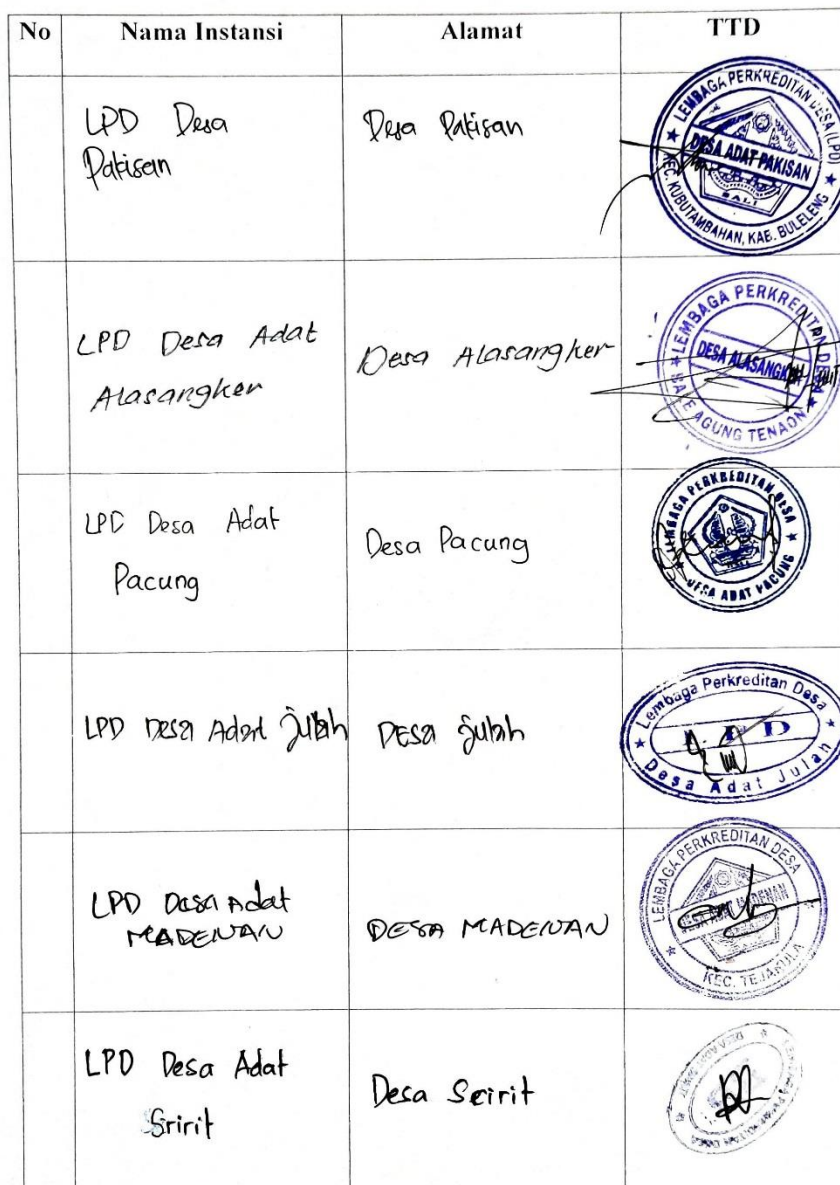 No Nama Instansi Alamat TTD
LPD Desa
Pakisan
Desa Pakisan
LEMBAGA PERKREDITAN DESA (LPD)
DESA ADAT PAKISAN
BALI
KEC. KUBUTAMBAHAN, KAB. BULELENG
LPD Desa Adat
Alasangker
Desa Alasangker
LEMBAGA PERKREDITAN DESA
DESA ALASANGKER
BALE AGUNG TENAON
LPD Desa Adat
Pacung
Desa Pacung
LEMBAGA PERKREDITAN DESA
DESA ADAT PACUNG
LPD Desa Adat Julah
Desa Julah
Lembaga Perkreditan Desa
LPD
Desa Adat Julah
LPD Desa Adat
MADENAN
DESA MADENAN
LEMBAGA PERKREDITAN DESA
DESA ADAT MADENAN
KEC. TEJAKULA
LPD Desa Adat
Sririt
Desa Seirit